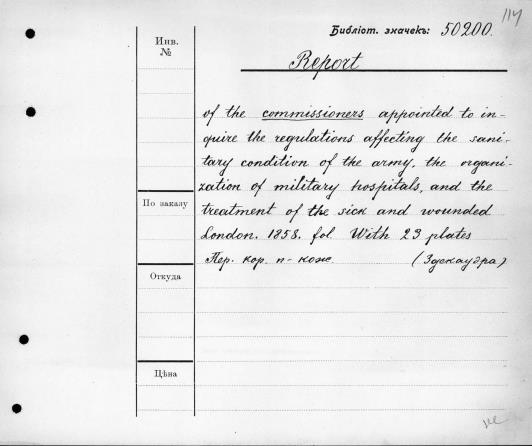 114
Библіот. значекъ: 50200.
Инв.
№
Report
of the commissioners appointed to in-
quire the regulations affecting the sani-
tary condition of the army, the organi-
zation of military hospitals, and the
По заказу
treatment of the sick and wounded
London. 1858. fol. With 23 plates
Пер. кор. п-кож. (Здекауэра)
Откуда
Цѣна